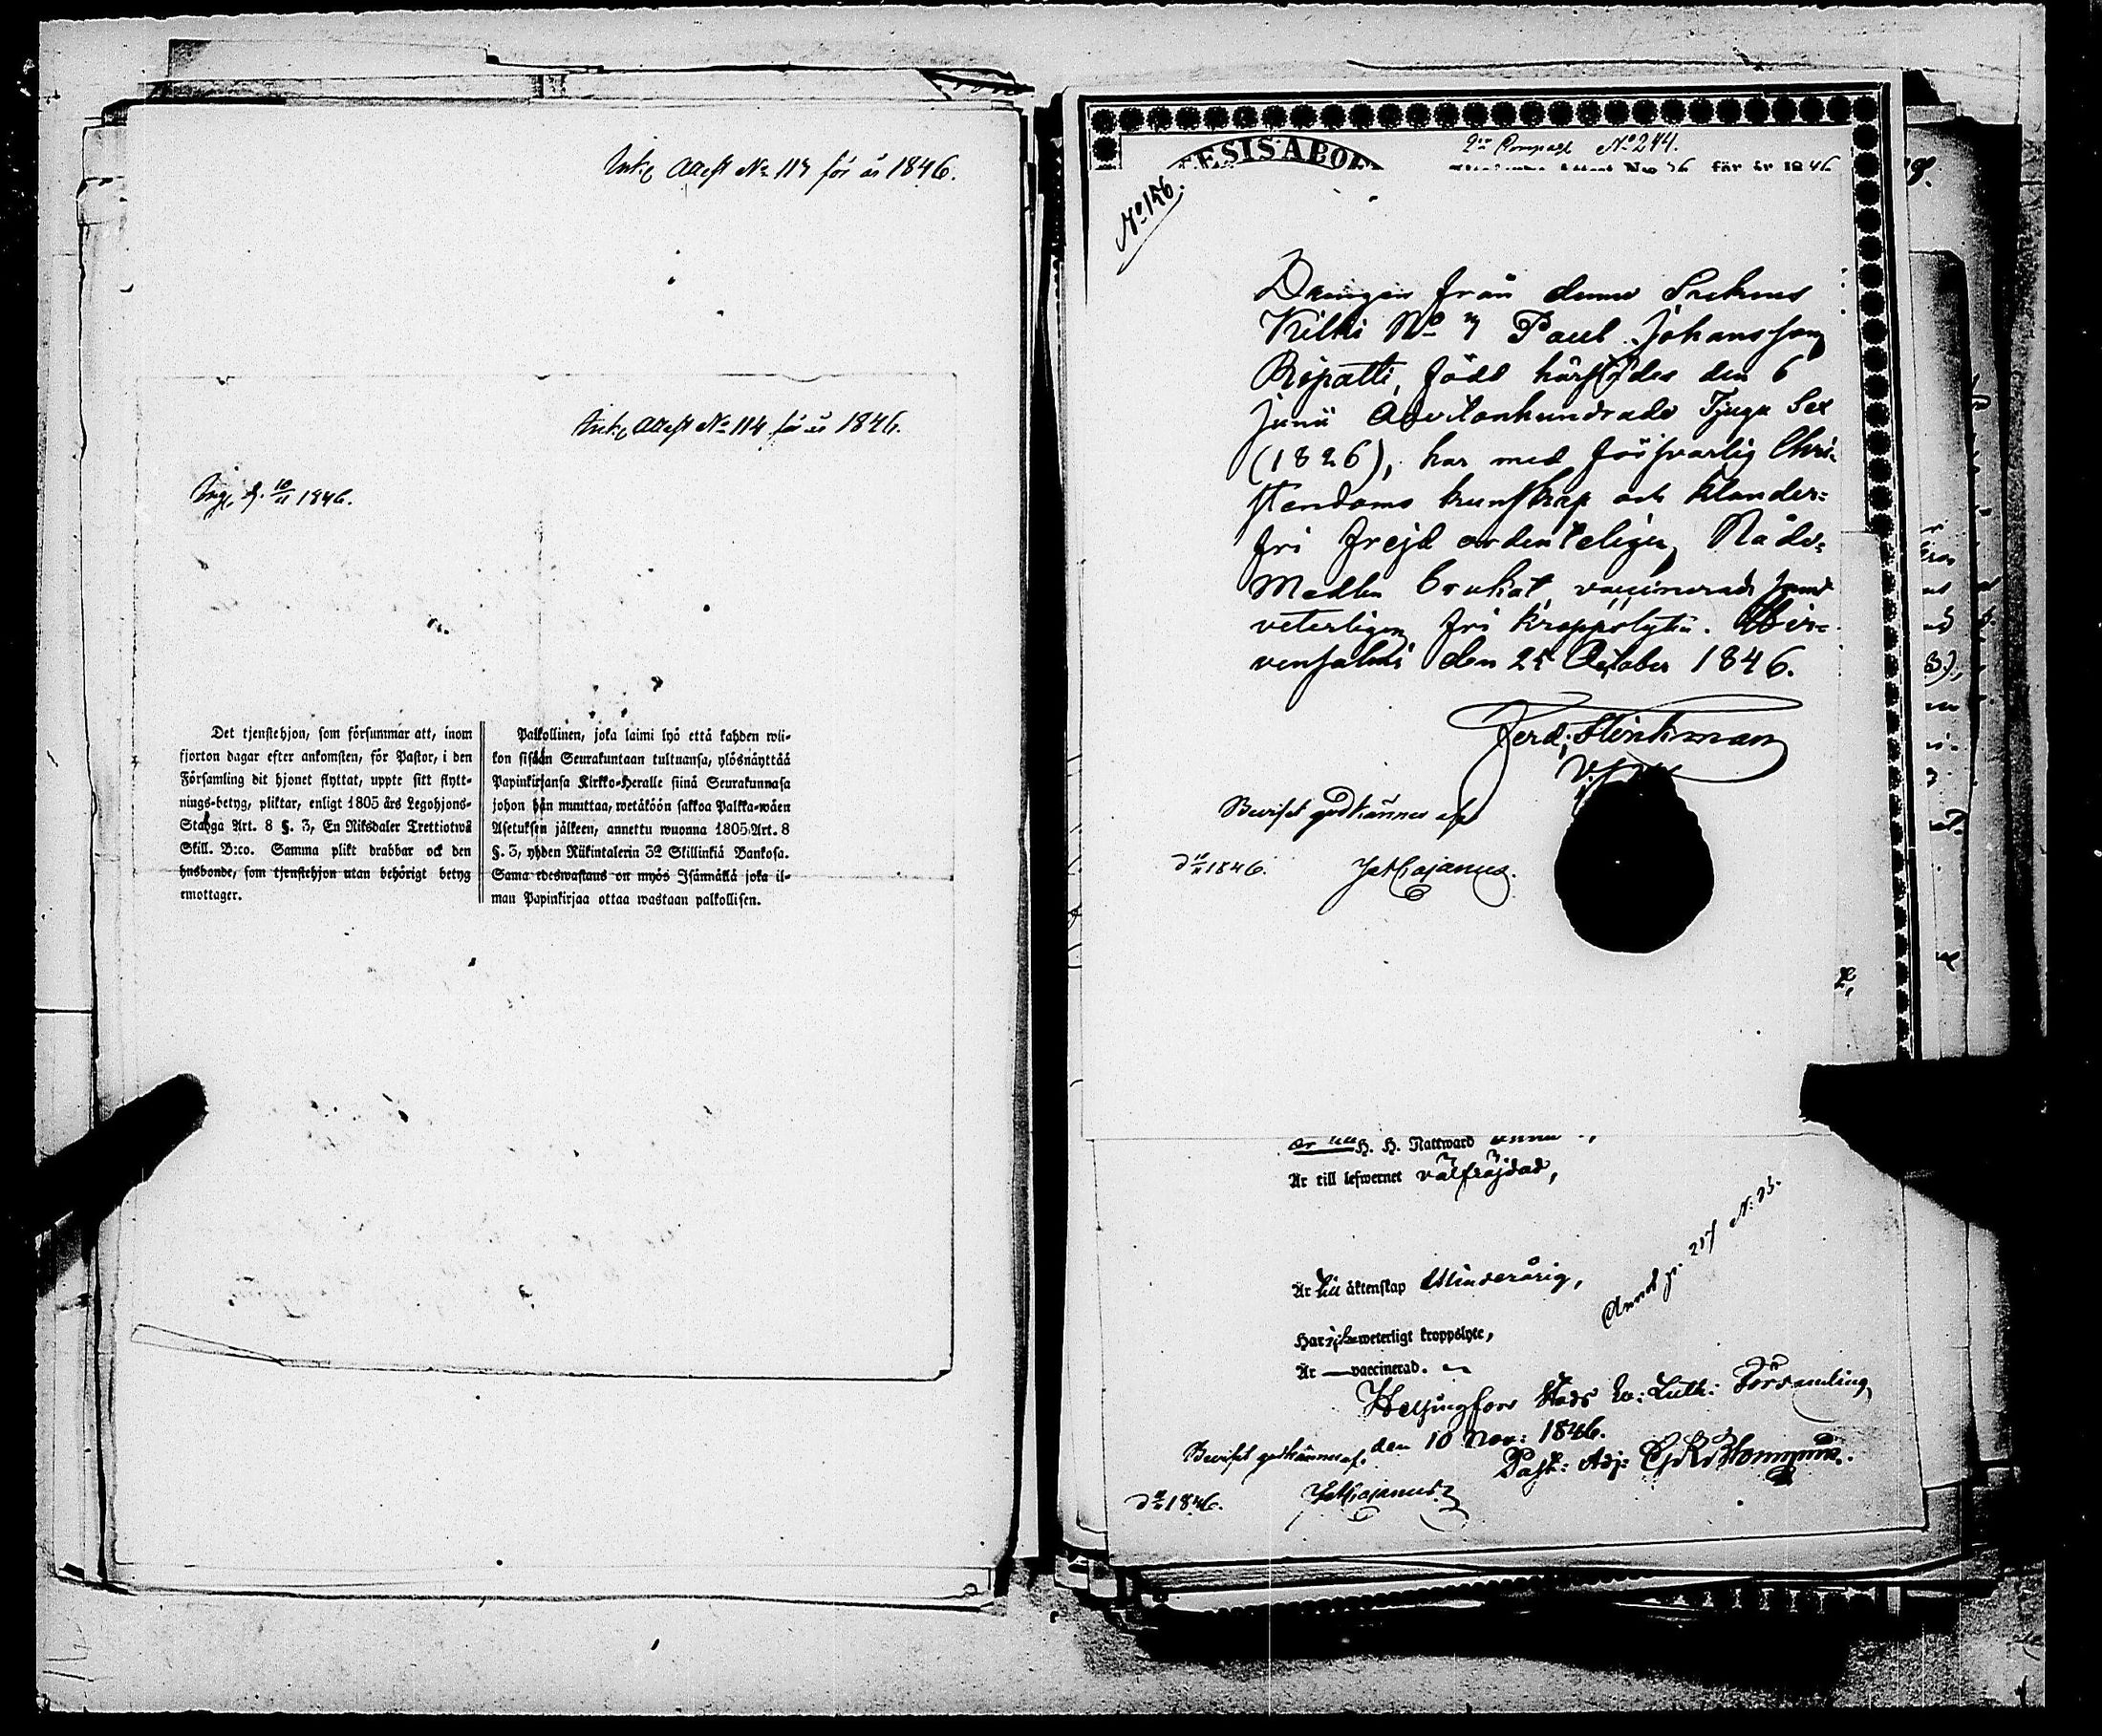 Ink. Attest No 113 för år 1846.
Ink. Attest No 114 för år 1846.
Ing. d. 10/11 1846.
Det tjenstehjon, som försummar att, inom
fjorton dagar efter ankomsten, för Pastor, i den
Församling dit hjonet flyttat, uppte sitt flytt-
nings-betyg, pliktar, enligt 1805 års Legohjons-
Stadga Art. 8 §. 3, En Riksdaler Trettiotwå
Skill. B:co. Samma plikt drabbar ock den
husbonde, som tjenstehjon utan behörigt betyg
emottager.
Palkollinen, joka laimi lyö että kahden wii-
kon sisään Seurakuntaan tultuansa, ylösnäyttää
Papinkirjansa Kirkko-Heralle siinä Seurakunnasa
johon hän muuttaa, wetäköön sakkoa Palkka-wäen
Asetuksen jälkeen, annettu wuonna 1805 Art. 8
§. 3, yhden Riikintalerin 32 Skillinkiä Bankosa.
Sama edeswastaus on myös Isännällä joka il-
man Papinkirjaa ottaa wastaan palkollisen.
No 244.
No 36 för år 1846
No 156.
Drängen från denne Sockens
Kilki No 7 Paul Johansson
Ripatti, född härstädes den 6
Junii Adertonhundrade Tjugu Sex
(1826), har med försvarlig Chri-
stendoms kunskap och klander-
fri frejd ordenteligen Nåde-
Medlen brukat, vaccinerad samt
veterligen fri kroppslyte. Hir-
vensalmi den 25 October 1846.
Ferd.
Beviset godkännes af
d 10/11 1846.
H. H. Nattward
Är till lefwernet välfräjdad,
Är till äktenskap Minderårig,
Har icke weterligt kroppslyte,
Är — vaccinerad.
Annot p. 217 N. 23.
Helsingfors Stads Ev: Luth: Församling,
den 10 Nov: 1846.
Beviset godkännes af.
Past: Adj:
1846.